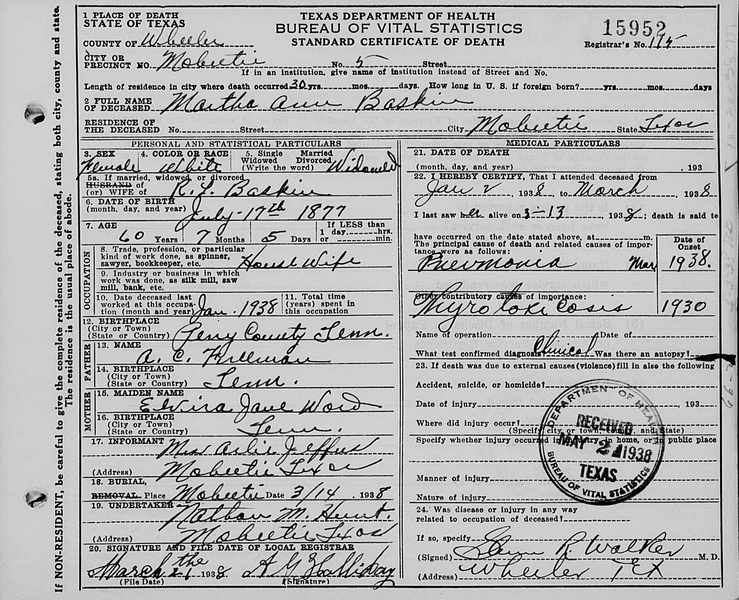 1 PLACE OF DEATH
STATE OF TEXAS
COUNTY OF Wheeler
CITY OR
PRECINCT NO. Mobeetie No. 5 Street
TEXAS DEPARTMENT OF HEALTH
BUREAU OF VITAL STATISTICS
STANDARD CERTIFICATE OF DEATH
15952
Registrar's No. 195
If in an institution, give name of institution instead of Street and No.
Length of residence in city where death occurred 30 yrs. mos. days. How long in U. S. if foreign born? yrs. mos. days
2 FULL NAME
OF DECEASED Martha Ann Baskin
RESIDENCE OF
THE DECEASED No. Street City Mobeetie State Texas
PERSONAL AND STATISTICAL PARTICULARS
3. SEX 4. COLOR OR RACE 5. Single Married
Widowed Divorced
(Write the word)
Female White Widowed
5a. If married, widowed, or divorced
HUSBAND of
(or) WIFE OF R. L. Baskin
6. DATE OF BIRTH
(month, day, and year) July-17th 1877
7. AGE
60 Years 7 Months 5 Days
If LESS than
1 day, hrs.
or min.
OCCUPATION
8. Trade, profession, or particular
kind of work done, as spinner,
sawyer, bookkeeper, etc. House Wife
9. Industry or business in which
work was done, as silk mill, saw
mill, bank, etc.
10. Date deceased last
worked at this occupa-
tion (month and year) Jan. 1938
11. Total time (years)
spent in this
occupation
12. BIRTHPLACE
(City or Town)
(State or Country) County Tenn.
FATHER
13. NAME A. C.
14. BIRTHPLACE
(City or Town)
(State or Country) Tenn.
MOTHER
15. MAIDEN NAME Elvira Jane Word
16. BIRTHPLACE
(City or Town)
(State or Country) Tenn
17. INFORMANT
(Address) Mobeetie Texas
18. BURIAL,
REMOVAL. Place Mobeetie Date 3/14 1938
19. UNDERTAKER Nathan M. Hunt.
(Address) Mobeetie Texas
20. SIGNATURE AND FILE DATE OF LOCAL REGISTRAR
March 1938
(File Date) (Signature)
MEDICAL PARTICULARS
21. DATE OF DEATH
(month, day, and year) 193
22. I HEREBY CERTIFY, That I attended deceased from
Jan 2 1938 to March 1938
I last saw her alive on 3-13 1938; death is said to
have occurred on the date stated above, at m.
The principal cause of death and related causes of impor-
tance were as follows:
Date of
Onset
Pneumonia Mar 1938.
Other contributory causes of importance:
Thyrotoxicosis 1930
Name of operation
What test confirmed diagnosis Clinical Was there an autopsy?
23. If death was due to external causes (violence) fill in also the following
Accident, suicide, or homicide?
Date of injury 193
Where did injury occur?
(Specify city or town, and State)
Specify whether injury occurred in industry in home, or in public place
Manner of injury
Nature of injury
DEPARTMENT OF HEALTH
RECEIVED
MAY 21 1938
TEXAS
BUREAU OF VITAL STATISTICS
24. Was disease or injury in any way
related to occupation of deceased?
If so, specify
(Signed) Glenn R. Walker M. D.
(Address) Wheeler Tex
If NON-RESIDENT, be careful to give the complete residence of the deceased, stating both city, county and state.
The residence is the usual place of abode.